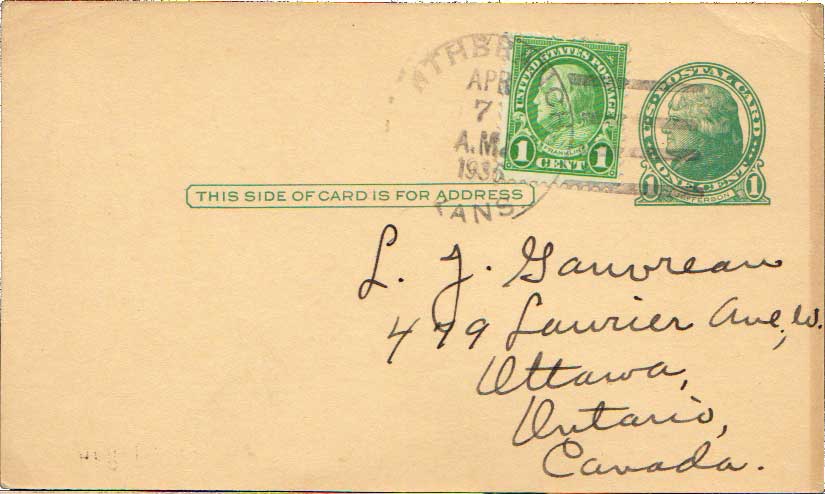 APR
7
A.M.
UNITED STATES POSTAGE
FRANKLIN
1 CENT 1
U.S. POSTAL CARD
1 ONE CENT 1
JEFFERSON
THIS SIDE OF CARD IS FOR ADDRESS
L. J. Gauvreau
479 Laurier Ave, W.
Ottawa,
Ontario,
Canada.